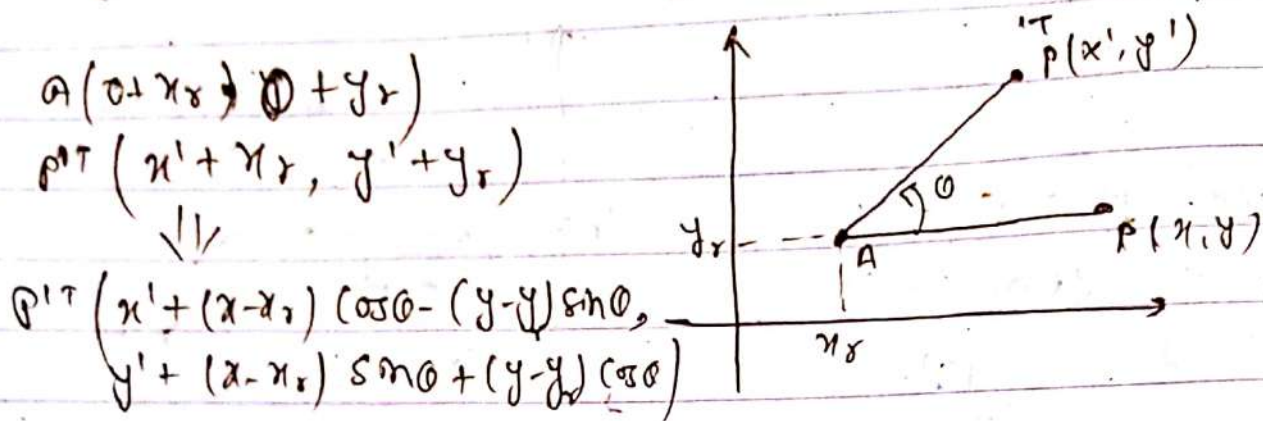 A(0+xᵣ, 0+yᵣ)
P'ᵀ(x'+xᵣ, y'+yᵣ)
⇓
P'ᵀ(x'+(x-xᵣ) cosθ-(y-yᵣ) sinθ,
y'+(x-xᵣ) sinθ+(y-yᵣ) cosθ)
'T
P(x', y')
θ
yᵣ
A
P(x,y)
xᵣ